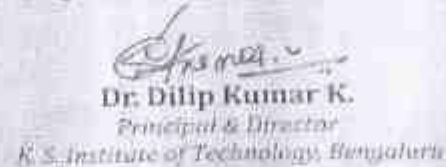 Dr. Dilip Kumar K.
Principal & Director
K. S. Institute of Technology, Bengaluru